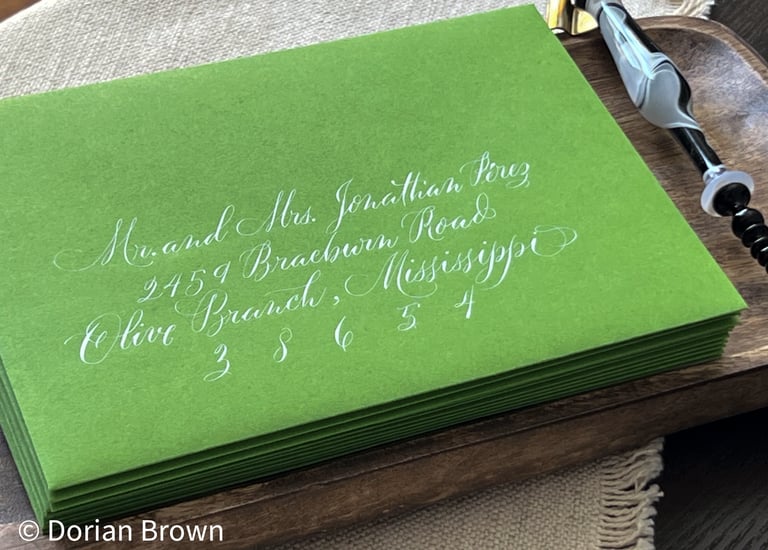 Mr. and Mrs. Jonathan Perez
2459 Braeburn Road
Olive Branch, Mississippi
38654
© Dorian Brown